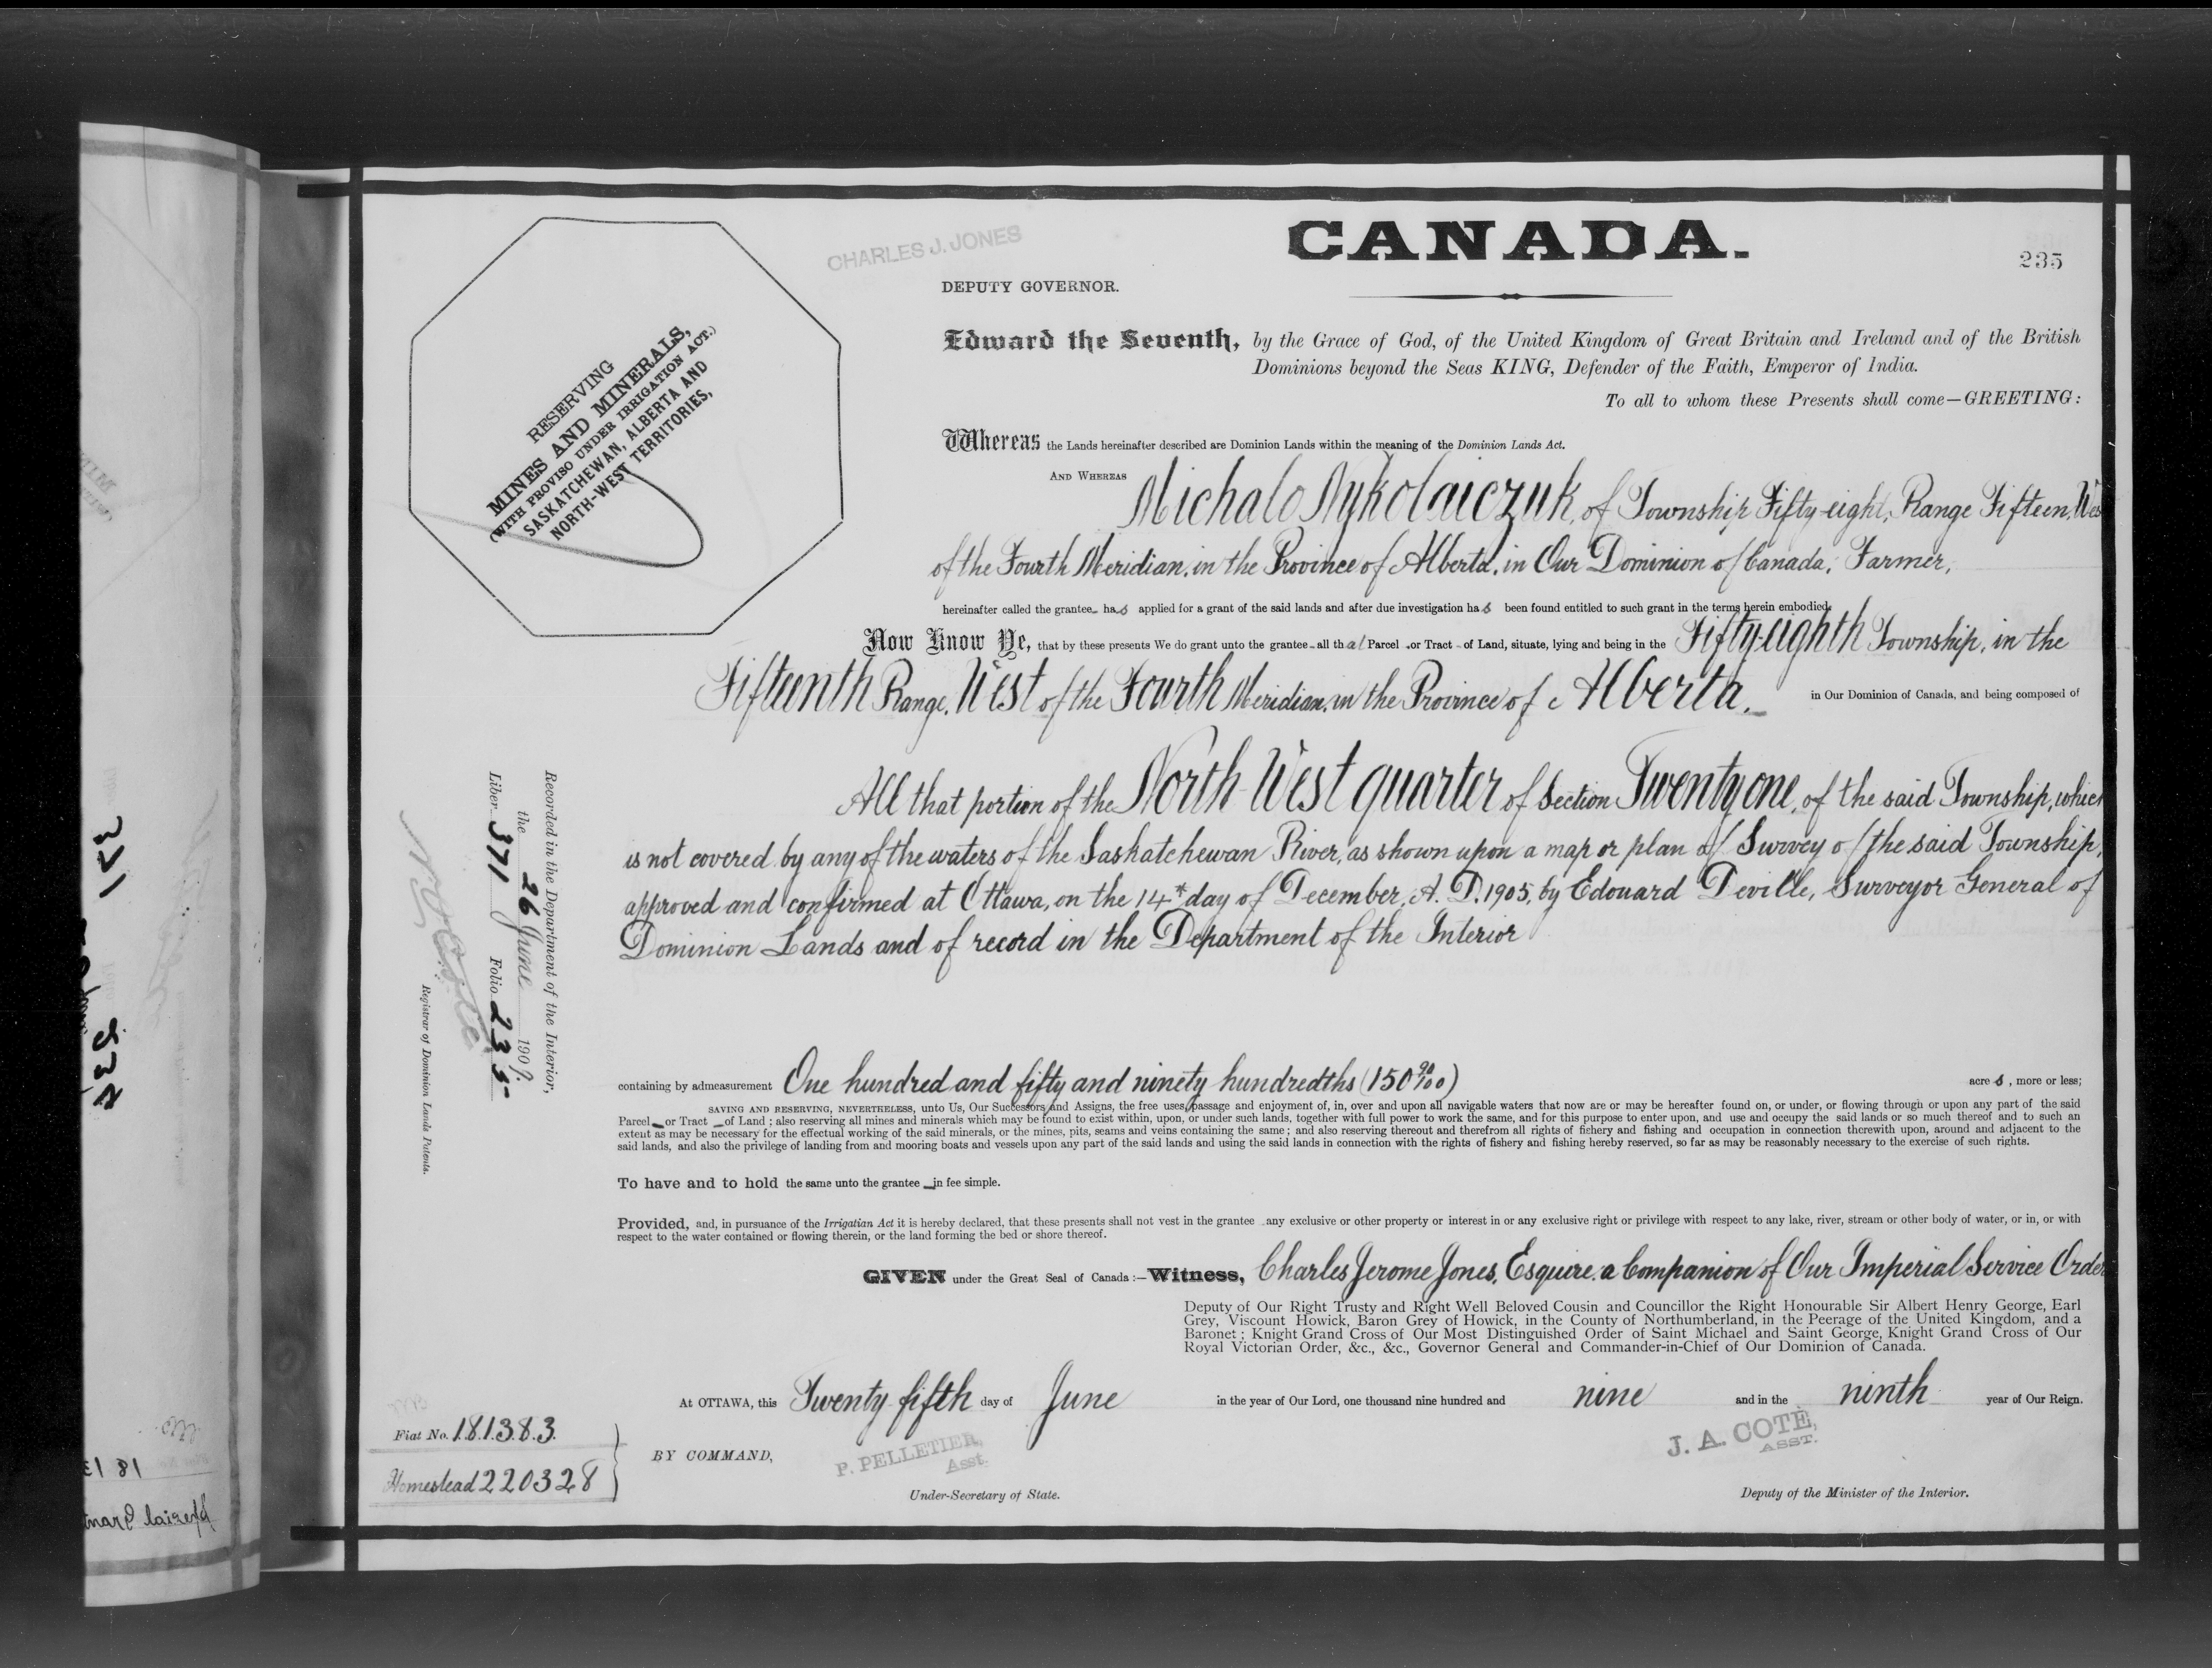 CHARLES J. JONES
CANADA.
235
DEPUTY GOVERNOR.
RESERVING
MINES AND MINERALS,
(WITH PROVISO UNDER IRRIGATION ACT.)
SASKATCHEWAN, ALBERTA AND
NORTH-WEST TERRITORIES,
Edward the Seventh, by the Grace of God, of the United Kingdom of Great Britain and Ireland and of the British
Dominions beyond the Seas KING, Defender of the Faith, Emperor of India.
To all to whom these Presents shall come—GREETING:
Whereas the Lands hereinafter described are Dominion Lands within the meaning of the Dominion Lands Act.
AND WHEREAS Michalo Nykolaiczuk, of Township Fifty-eight, Range Fifteen, Wes
of the Fourth Meridian, in the Province of Alberta, in Our Dominion of Canada, Farmer,
hereinafter called the grantee has applied for a grant of the said lands and after due investigation has been found entitled to such grant in the terms herein embodied.
Now Know Ye, that by these presents We do grant unto the grantee all that Parcel or Tract of Land, situate, lying and being in the Fifty-eighth Township, in the
Fifteenth Range, West of the Fourth Meridian, in the Province of Alberta, in Our Dominion of Canada, and being composed of
All that portion of the North West quarter of Section Twenty one, of the said Township, which
is not covered by any of the waters of the Saskatchewan River, as shown upon a map or plan of Survey of the said Township,
approved and confirmed at Ottawa, on the 14th day of December, A. D. 1905, by Edouard Deville, Surveyor General of
Dominion Lands and of record in the Department of the Interior
Recorded in the Department of the Interior,
the 26 June 1909.
Liber 371 Folio 235
Registrar of Dominion Lands Patents.
containing by admeasurement One hundred and fifty and ninety hundredths (150 90/100) acres, more or less;
SAVING AND RESERVING, NEVERTHELESS, unto Us, Our Successors and Assigns, the free uses, passage and enjoyment of, in, over and upon all navigable waters that now are or may be hereafter found on, or under, or flowing through or upon any part of the said
Parcel or Tract of Land; also reserving all mines and minerals which may be found to exist within, upon, or under such lands, together with full power to work the same, and for this purpose to enter upon, and use and occupy the said lands or so much thereof and to such an
extent as may be necessary for the effectual working of the said minerals, or the mines, pits, seams and veins containing the same; and also reserving thereout and therefrom all rights of fichery and fishing and occupation in connection therewith upon, around and adjacent to the
said lands, and also the privilege of landing from and mooring boats and vessels upon any part of the said lands and using the said lands in connection with the rights of fishery and fishing hereby reserved, so far as may be reasonably necessary to the exercise of such rights.
To have and to hold the same unto the grantee in fee simple.
Provided, and, in pursuance of the Irrigatian Act it is hereby declared, that these presents shall not vest in the grantee any exclusive or other property or interest in or any exclusive right or privilege with respect to any lake, river, stream or other body of water, or in, or with
respect to the water contained or flowing therein, or the land forming the bed or shore thereof.
GIVEN under the Great Seal of Canada:—Witness, Charles Jerome Jones, Esquire, a Companion of Our Imperial Service Order
Deputy of Our Right Trusty and Right Well Beloved Cousin and Councillor the Right Honourable Sir Albert Henry George, Earl
Grey, Viscount Howick, Baron Grey of Howick, in the County of Northumberland, in the Peerage of the United Kingdom, and a
Baronet; Knight Grand Cross of Our Most Distinguished Order of Saint Michael and Saint George, Knight Grand Cross of Our
Royal Victorian Order, &c., &c., Governor General and Commander-in-Chief of Our Dominion of Canada.
At OTTAWA, this Twenty fifth day of June in the year of Our Lord, one thousand nine hundred and nine and in the ninth year of Our Reign.
Fiat No. 181383.
Homestead 220328
BY COMMAND,
P. PELLETIER,
Asst.
Under-Secretary of State.
J. A. COTÉ,
ASST.
Deputy of the Minister of the Interior.